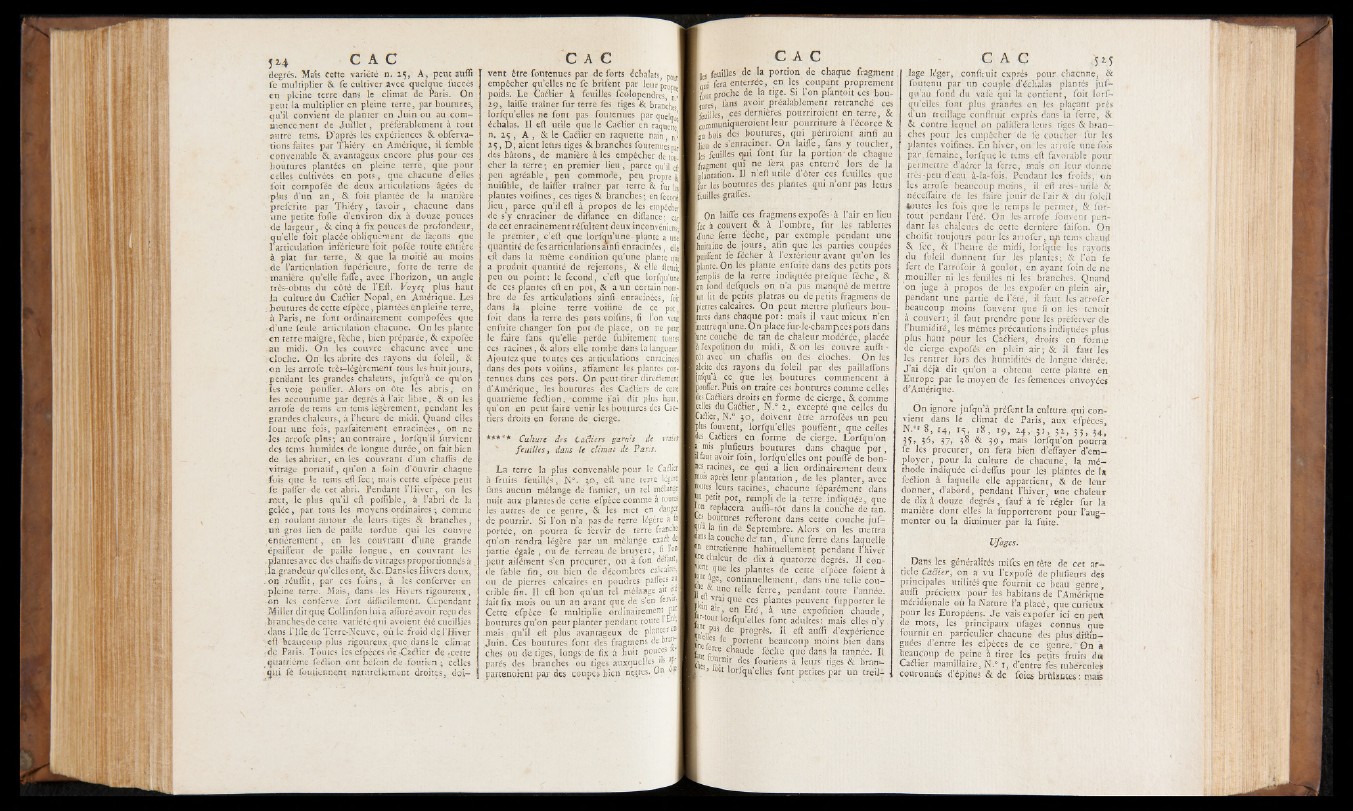 524 C A C
degrés. Mais cette variété n. 25, A, peut auſſi
ſe multiplier & ſe cultiver avec quelque ſuccès
en pleine terre dans le climat de Paris. On
peut la multiplier en pleine terre, par boutures,
qu'il convient de planter en Juin ou au com-
mencement de Juillet, préférablement à tout
autre tems. D'après les expériences & obſerva-
tions faites par Thiéry en Amérique, il ſemble
convenable & avantageux encore plus pour ces
boutures plantées en pleine terre, que pour
celles cultivées en pots, que chacune d'elles
ſoit compoſée de deux articulations âgées de
plus d'un an, & ſoit plantée de la manière
preſcrite par Thiéry, ſavoir, chacune dans
une petite foſſe d'environ dix à douze pouces
de largeur, & cinq à ſix pouces de profondeur,
qu'elle ſoit placée obliquement de façons que
l'articulation inférieure ſoit poſée toute entière
à plat ſur terre, & que la moitié au moins
de l'articulation ſupérieure, ſorte de terre de
manière qu'elle faſſe, avec l'horizon, un angle
très-obtus du côté de l'Eſt. Voyez plus haut
la culture du Cactier Nopal, en Amérique. Les
boutures de cette eſpèce, plantées en pleine terre,
à Paris, ne ſont ordinairement compoſées que
d'une ſeule articulation chacune. On les plante
en terre maigre, ſèche, bien préparée, & expoſée
au midi. On les couvre chacune avec une
cloche. On les abrite des rayons du ſoleil, &
on les arroſe très-légèrement tous les huit jours,
pendant les grandes chaleurs, juſqu'à ce qu'on
les voie pouſſer. Alors on ôte les abris, on
les accoutume par degrés à l'air libre, & on les
arroſe de tems en tems légèrement, pendant les
grandes chaleurs, à l'heure de midi. Quand elles
ſont une fois, parfaitement enracinées, on ne
les arroſe plus; au contraire, lorſqu'il ſurvient
des tems humides de longue durée, on fait bien
de les abriter, en les couvrant d'un chaſſis de
vitrage portatif, qu'on a ſoin d'ouvrir chaque
fois que le tems eſt ſec; mais cette eſpèce peut
ſe paſſer de cet abri. Pendant l'Hiver, on les
met, le plus qu'il eſt poſſible, à l'abri de la
gelée, par tous les moyens ordinaires; comme
en roulant autour de leurs tiges & branches,
un gros lien de paille tordue qui les couvre
entièrement, en les couvrant d'une grande
épaiſſeur de paille longue, en couvrant les
plantes avec des chaſſis de vitrages proportionnés à
la grandeur qu'elles ont, &c. Dans les Hivers doux,
on réuſſit, par ces ſoins, à les conſerver en
pleine terre. Mais, dans les Hivers rigoureux,
on les conſerve fort difficilement. Cependant
Miller dit que Collinſon lui a aſſuré avoir reçu des
branches de cette variété qui avoient été cueillies
dans l'Iſle de Terre-Neuve, où le froid de l'Hiver
eſt beaucoup plus rigoureux que dans le climat
de Paris. Toutes les eſpèces de Cactier de cette
quatrième ſection ont beſoin de ſoutien; celles
qui ſe ſoutiennent naturellement droites, doi-
C A C
vent être ſoutenues par de forts échalats, pour
empêcher qu'elles ne ſe briſent par leur propre
poids. Le Cactier à feuilles ſcolopendres, n.°
29, laiſſe traîner ſur terre ſes tiges & branches,
lorſqu'elles ne ſont pas ſoutenues par quelque
échalas. Il eſt utile que le Cactier en raquette,
n. 25, A, & le Cactier en raquette nain, n.°
25, D, aient leurs tiges & branches ſoutenues par
des bâtons, de manière à les empêcher de tou-
cher la terre; en premier lieu, parce qu'il eſt
peu agréable, peu commode, peu propre &
nuiſible, de laiſſer traîner par terre & ſur les
plantes voiſines, ces tiges & branches; en ſecond
lieu, parce qu'il eſt à propos de les empêcher
de s'y enraciner de diſtance en diſtance; car
de cet enracinement réſultent deux inconvéniens,
le premier, c'eſt que lorſqu'une plante a une
quantité de ſes articulations ainſi enracinées, elle
eſt dans la même condition qu'une plante qui
a produit quantité de rejettons, & elle fleurit
peu ou point: le ſecond, c'eſt que lorſqu'une
de ces plantes eſt en pot, & a un certain nom-
bre de ſes articulations ainſi enracinées, ſoit
dans la pleine terre voiſine de ce pot,
ſoit dans la terre des pots voiſins, ſi l'on veut
enſuite changer ſon pot de place, on ne peut
le faire ſans qu'elle perde ſubitement toutes
ces racines, & alors elle tombe dans la langueur.
Ajoutez que toutes ces articulations enracinées
dans des pots voiſins, affament les plantes con-
tenues dans ces pots. On peut tirer directement
d'Amérique, les boutures des Cactiers de cette
quatrième ſection, comme j'ai dit plus haut,
qu'on en peut faire venir les boutures des Cac-
tiers droits en forme de cierge.
***** Culture des Cactiers garnis de vraies
feuilles, dans le climat de Paris.
La terre la plus convenable pour le Cactier
à fruits feuillés, N°. 30, eſt une terre légère
ſans aucun mélange de fumier, un tel mélange
nuit aux plantes de cette eſpèce comme à toutes
les autres de ce genre, & les met en danger
de pourrir. Si l'on n'a pas de terre légère à ſa
portée, on pourra ſe ſervir de terre franche
qu'on rendra légère par un mélange exact de
partie égale, ou de terreau de bruyère, ſi l'on
peut aiſément s'en procurer, ou à ſon défaut,
de ſable fin, ou bien de décombres calcaires,
ou de pierres calcaires en poudres paſſées en
crible fin. Il eſt bon qu'un tel mélange ait été
fait ſix mois ou un an avant que de s'en ſervir.
Cette eſpèce ſe multiplie ordinairement par
boutures qu'on peut planter pendant toute l'Eté,
mais qu'il eſt plus avantageux de planter en
Juin. Ces boutures ſont des fragmens de bran-
ches ou de tiges, longs de ſix à huit pouces ſé-
parés des branches ou tiges auxquelles ils ap-
partenoient par des coupes bien nettes. On ôte
C A C
les feuilles de la portion de chaque fragment
qui ſera enterrée, en les coupant proprement
tout proche de la tige. Si l'on plantoit ces bou-
tures, ſans avoir préalablement retranché ces
feuilles, ces dernières pourriroient en terre, &
communiqueroient leur pourriture à l'écorce &
au bois des boutures, qui périroient ainſi au
lieu de s'enraciner. On laiſſe, ſans y toucher,
les feuilles qui ſont ſur la portion de chaque
fragment qui ne ſera pas enterré lors de la
plantation. Il n'eſt utile d'ôter ces feuilles que
ſur les boutures des plantes qui n'ont pas leurs
feuilles graſſes.
On laiſſe ces fragmens expoſés à l'air en lieu
ſec à couvert & à l'ombre, ſur les tablettes
d'une ſerre ſèche, par exemple pendant une
huitaine de jours, afin que les parties coupées
puiſſent ſe ſécher à l'extérieur avant qu'on les
plante. On les plante enſuite dans des petits pots
remplis de la terre indiquée preſque ſèche, &
au fond deſquels on n'a pas manqué de mettre
un lit de petits platras ou de petits fragmens de
pierres calcaires. On peut mettre pluſieurs bou-
tures dans chaque pot: mais il vaut mieux n'en
mettre qu'une. On place ſur-le-champ ces pots dans
une couche de tan de chaleur modérée, placée
à l'expoſition du midi, & on les couvre auſſi-
tôt avec un chaſſis ou des cloches. On les
abrite des rayons du ſoleil par des paillaſſons
juſqu'à ce que les boutures commencent à
pouſſer. Puis on traite ces boutures comme celles
des Cactiers droits en forme de cierge, & comme
celles du Cactier, N.° 2, excepté que celles du
Cactier, N.° 30, doivent être arroſées un peu
plus ſouvent, lorſqu'elles pouſſent, que celles
des Cactiers en forme de cierge. Lorſqu'on
a mis pluſieurs boutures dans chaque pot,
il faut avoir ſoin, lorſqu'elles ont pouſſé de bon-
nes racines, ce qui a lieu ordinairement deux
mois après leur plantation, de les planter, avec
toutes leurs racines, chacune ſéparément dans
un petit pot, rempli de la terre indiquée, que
l'on replacera auſſi-tôt dans la couche de tan.
Ces boutures reſteront dans cette couche juſ-
qu'à la fin de Septembre. Alors on les mettra
dans la couche de tan, d'une ſerre dans laquelle
on entretienne habituellement pendant l'hiver
une chaleur de dix à quatorze degrés. Il con-
vient que les plantes de cette eſpèce ſoient à
tout âge, continuellement, dans une telle cou-
che & une telle ſerre, pendant toute l'année.
Il eſt vrai que ces plantes peuvent ſupporter le
plein air, en Eté, à une expoſition chaude,
ſur-tout lorſqu'elles ſont adultes: mais elles n'y
font pas de progrès. Il eſt auſſi d'expérience
qu'elles ſe portent beaucoup moins bien dans
une ſerre chaude ſèche que dans la tannée. Il
faut fournir des ſoutiens à leurs tiges & bran-
ches, ſoit lorſqu'elles ſont petites par un treil-
C A C 525
lage léger, conſtruit exprès pour chacune, &
ſoutenu par un couple d'échalas plantés juſ-
qu'au fond du vaſe qui la contient, ſoit lorſ-
qu'elles ſont plus grandes en les plaçant près
d'un treillage conſtruit exprès dans la ſerre, &
& contre lequel on paliſſera leurs tiges & bran-
ches pour les empêcher de ſe coucher ſur les
plantes voiſines. En hiver, on les arroſe une fois
par ſemaine, lorſque le tems eſt favorable pour
permettre d'aërer la ſerre, mais on leur donne
très-peu d'eau à-la-fois. Pendant les froids, on
les arroſe beaucoup moins, il eſt très-utile &
néceſſaire de les faire jouir de l'air & du ſoleil
toutes les fois que le temps le permet, & ſur-
tout pendant l'été. On les arroſe ſouvent pen-
dant les chaleurs de cette dernière ſaiſon. On
choiſit toujours pour les arroſer, un tems chaud
& ſec, & l'heure de midi, lorſque les rayons
du ſoleil donnent ſur les plantes; & l'on ſe
ſert de l'arroſoir à goulot, en ayant ſoin de ne
mouiller ni les feuilles ni les branches. Quand
on juge à propos de les expoſer en plein air,
pendant une partie de l'été, il faut les arroſer
beaucoup moins ſouvent que ſi on les tenoit
à couvert; il faut prendre pour les préſerver de
l'humidité, les mêmes précautions indiquées plus
plus haut pour les Cactiers, droits en forme
de cierge expoſés en plein air; & il faut les
les rentrer lors des humidités de longue durée.
J'ai déjà dit qu'on a obtenu cette plante en
Europe par le moyen de ſes ſemences envoyées
d'Amérique.
On ignore juſqu'à préſent la culture qui con-
vient dans le climat de Paris, aux eſpèces,
N.os 8, 14, 15, 18, 19, 24, 31, 32, 33, 34,
35, 36, 37, 38 & 39, mais lorſqu'on pourra
ſe les procurer, on ſera bien d'eſſayer d'em-
ployer, pour la culture de chacune, la mé-
thode indiquée ci-deſſus pour les plantes de la
ſection à laquelle elle appartient, & de leur
donner, d'abord, pendant l'hiver, une chaleur
de dix à douze degrés, ſauf à ſe régler ſur la
manière dont elles la ſupporteront pour l'aug-
menter ou la diminuer par la ſuite.
Uſages.
Dans les généralités miſes en tête de cet ar-
ticle Cactier, on a vu l'expoſé de pluſieurs des
principales utilités que fournit ce beau genre,
auſſi précieux pour les habitans de l'Amérique
méridionale où la Nature l'a placé, que curieux
pour les Européens. Je vais expoſer ici en peu
de mots, les principaux uſages connus que
fournit en particulier chacune des plus diſtin-
guées d'entre les eſpèces de ce genre. On a
beaucoup de peine à tirer les petits fruits du
Cactier mamillaire, N.° 1, d'entre ſes tubercules
couronnés d'épines & de ſoies brûlantes: mais